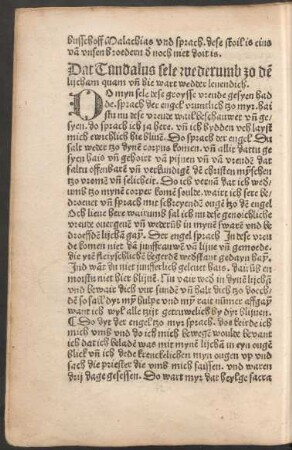 busschoff Malachias vnd sprach. dese stoil is eins
vā vnsen broedern d noch niet doit is.
Dat Tundalus sele wederumb zo dē
lijcham quam vñ hie wart wedder leuendich.
Do myn sele dese groysse vreude gesyen had
de. sprach der engel vruntlich tzo myr. hai
stu nu dese vreude wail beschauwet vñ ge-
syen. do sprach ich ja here. vñ ich bydden ych layst
mich ewichlich hie bliuē. Do sprach der engel. Du
salt weder tzo dynē corpus komen. vñ allit dattu ge
syen hais vñ gehoirt vā pijnen vñ vā vreudē dat
salen offenbarē vñ verkundigē dē christen myschen
tzo vromē vñ selicheit. Do ich vernā dat ich wed-
ums tzo mynē corper komē soulde. wart ich seer be
droeuet vñ sprach mit schreyendē ougē tzo dē engel
Och lieue here warumb sal ich nu dese genoichliche
vreude ouergeuē vñ wederūb in mynē swarē vnd be
droeffdē lijchā gay. Der engel sprach In dese vreu
de komen niet dā junffrauwē vā lijue vñ gemoede.
die yrē fleyschlichē begerdē wedstant gedayn haȳ.
Ind wār du niet junfferlich geleuet hais. dairūb en
moistu niet hier bliuē. Nu vair wed in dynē lijchā
vnd bewair dich vur sundē vñ halt dich tzo doechdē
dē so sall dyr mȳ hulpe vnd mȳ rait nūmer affgaȳ
want ich wyl alle zijt getruwelich by dyr blijuen.
¶ Do dyt der engel tzo myr sprach. doe keirde ich
mich vmb vnd do ich mich bewege woulde bevant
ich dat ich beladē was mit mynē lijchā in eyn ougē
blick vñ ich dede krenckelichen myn ougen vp vnd
sach die priester die vmb mich saissen. vnd waren
drij dage gesessen. Do wart myr dat heylge sacra